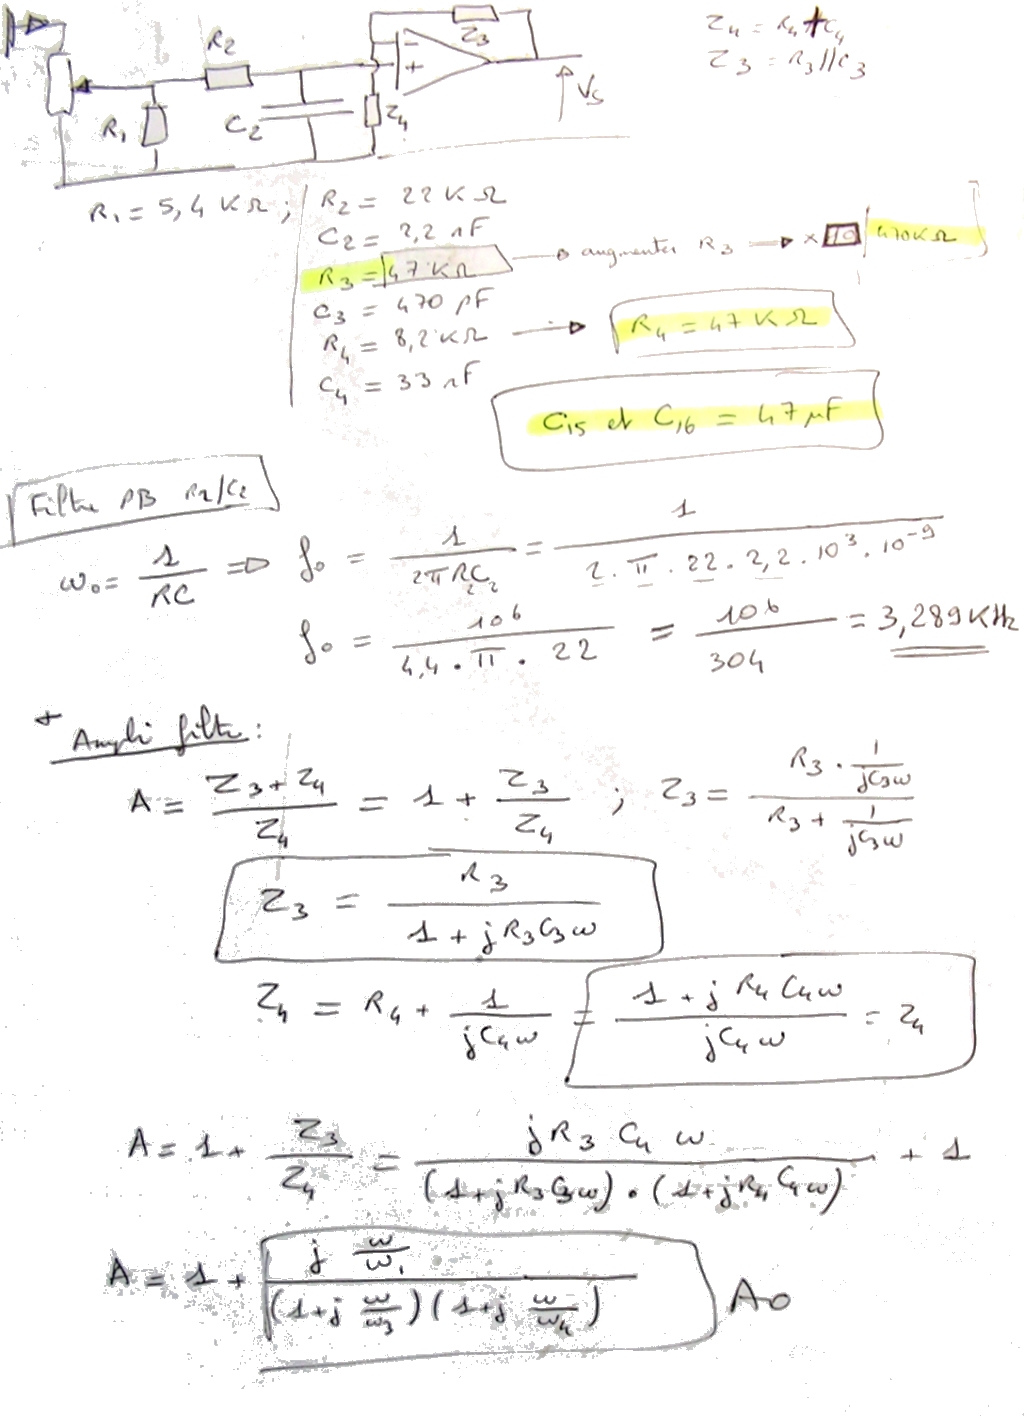 R2
Z3
Z4 = R4 + C4
Z3 = R3 // C3
-
+
VS
R1
C2
Z4
R1 = 5,4 KΩ ;
R2 = 22 KΩ
C2 = 2,2 nF
R3 = 47 KΩ → augmenter R3 → × 10 / 470KΩ
C3 = 470 pF
R4 = 8,2 KΩ → R4 = 47 KΩ
C4 = 33 nF
C15 et C16 = 47 µF
Filtre PB R2/C2
ω0 = 1 / RC => f0 = 1 / 2π R2C2 = 1 / 2 . π . 22 . 2,2 . 10^3 . 10^-9
f0 = 10^6 / 4,4 . π . 22 = 10^6 / 304 = 3,289 KHz
+ Ampli filtre :
A = Z3 + Z4 / Z4 = 1 + Z3 / Z4 ; Z3 = R3 . 1/jC3ω / R3 + 1/jC3ω
Z3 = R3 / 1 + j R3C3ω
Z4 = R4 + 1 / jC4ω = 1 + j R4 C4ω / jC4ω = Z4
A = 1 + Z3 / Z4 = j R3 C4 ω / (1 + j R3 C3ω) . (1 + j R4 C4ω) + 1
A = 1 + j ω/ω1 / (1 + j ω/ω3) (1 + j ω/ω4) A0